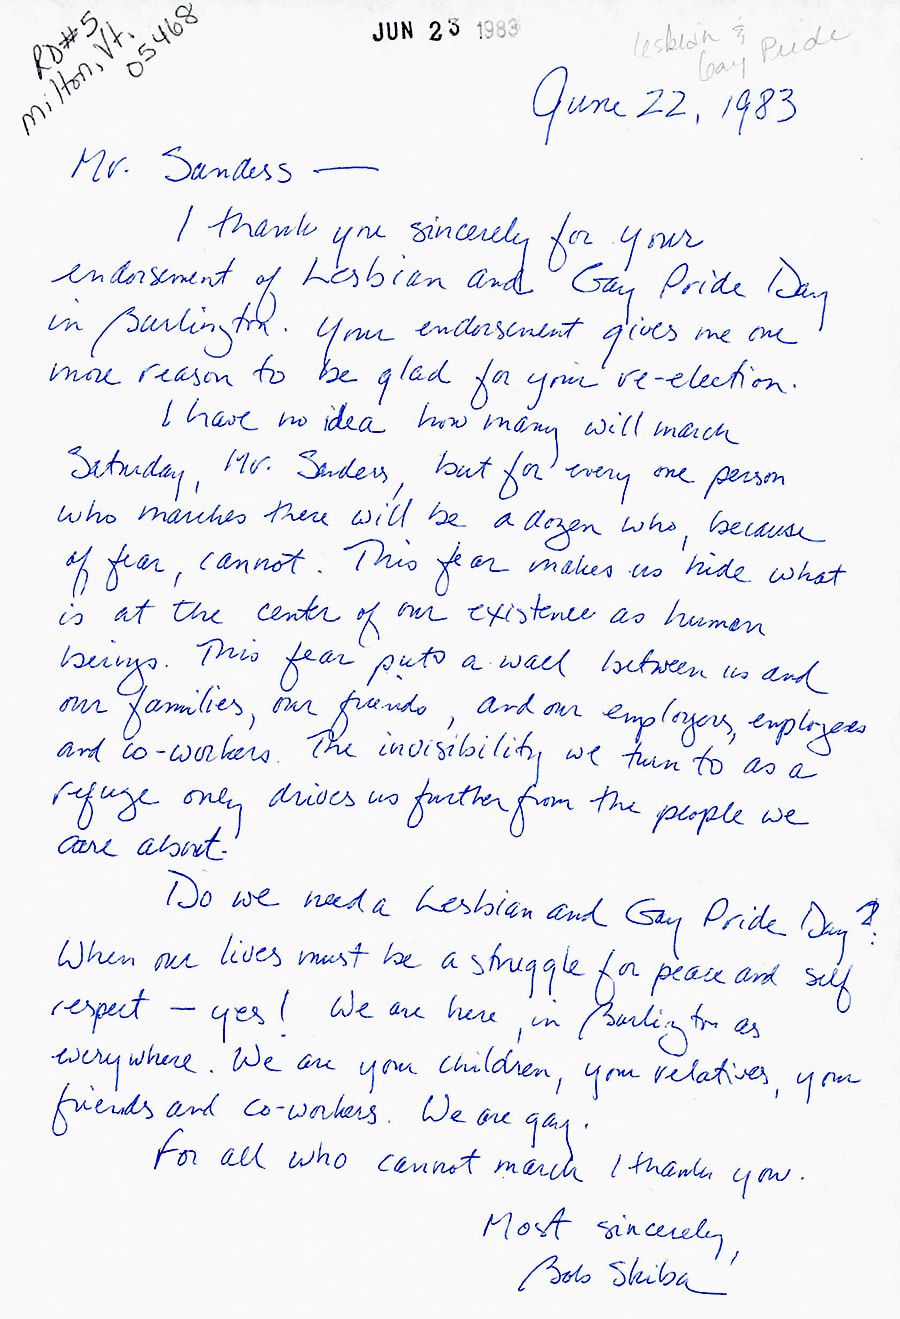 RD#5
Milton, Vt.
05468
JUN 23 1983
Lesbian &
Gay Pride
June 22, 1983
Mr. Sanders —
I thank you sincerely for your
endorsement of Lesbian and Gay Pride Day
in Burlington. Your endorsement gives me one
more reason to be glad for your re-election.
I have no idea how many will march
Saturday, Mr. Sanders, but for every one person
who marches there will be a dozen who, because
of fear, cannot. This fear makes us hide what
is at the center of our existence as human
beings. This fear puts a wall between us and
our families, our friends, and our employers, employees
and co-workers. The invisibility we turn to as a
refuge only drives us further from the people we
care about.
Do we need a Lesbian and Gay Pride Day?
When our lives must be a struggle for peace and self
respect — yes! We are here, in Burlington as
everywhere. We are your children, your relatives, your
friends and co-workers. We are gay.
For all who cannot march I thank you.
Most sincerely,
Bob Skiba